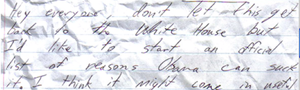 Hey everyone don't let this get
back to the White House but
I'd like to start an official
list of reasons Obama can suck
it. I think it might come in useful